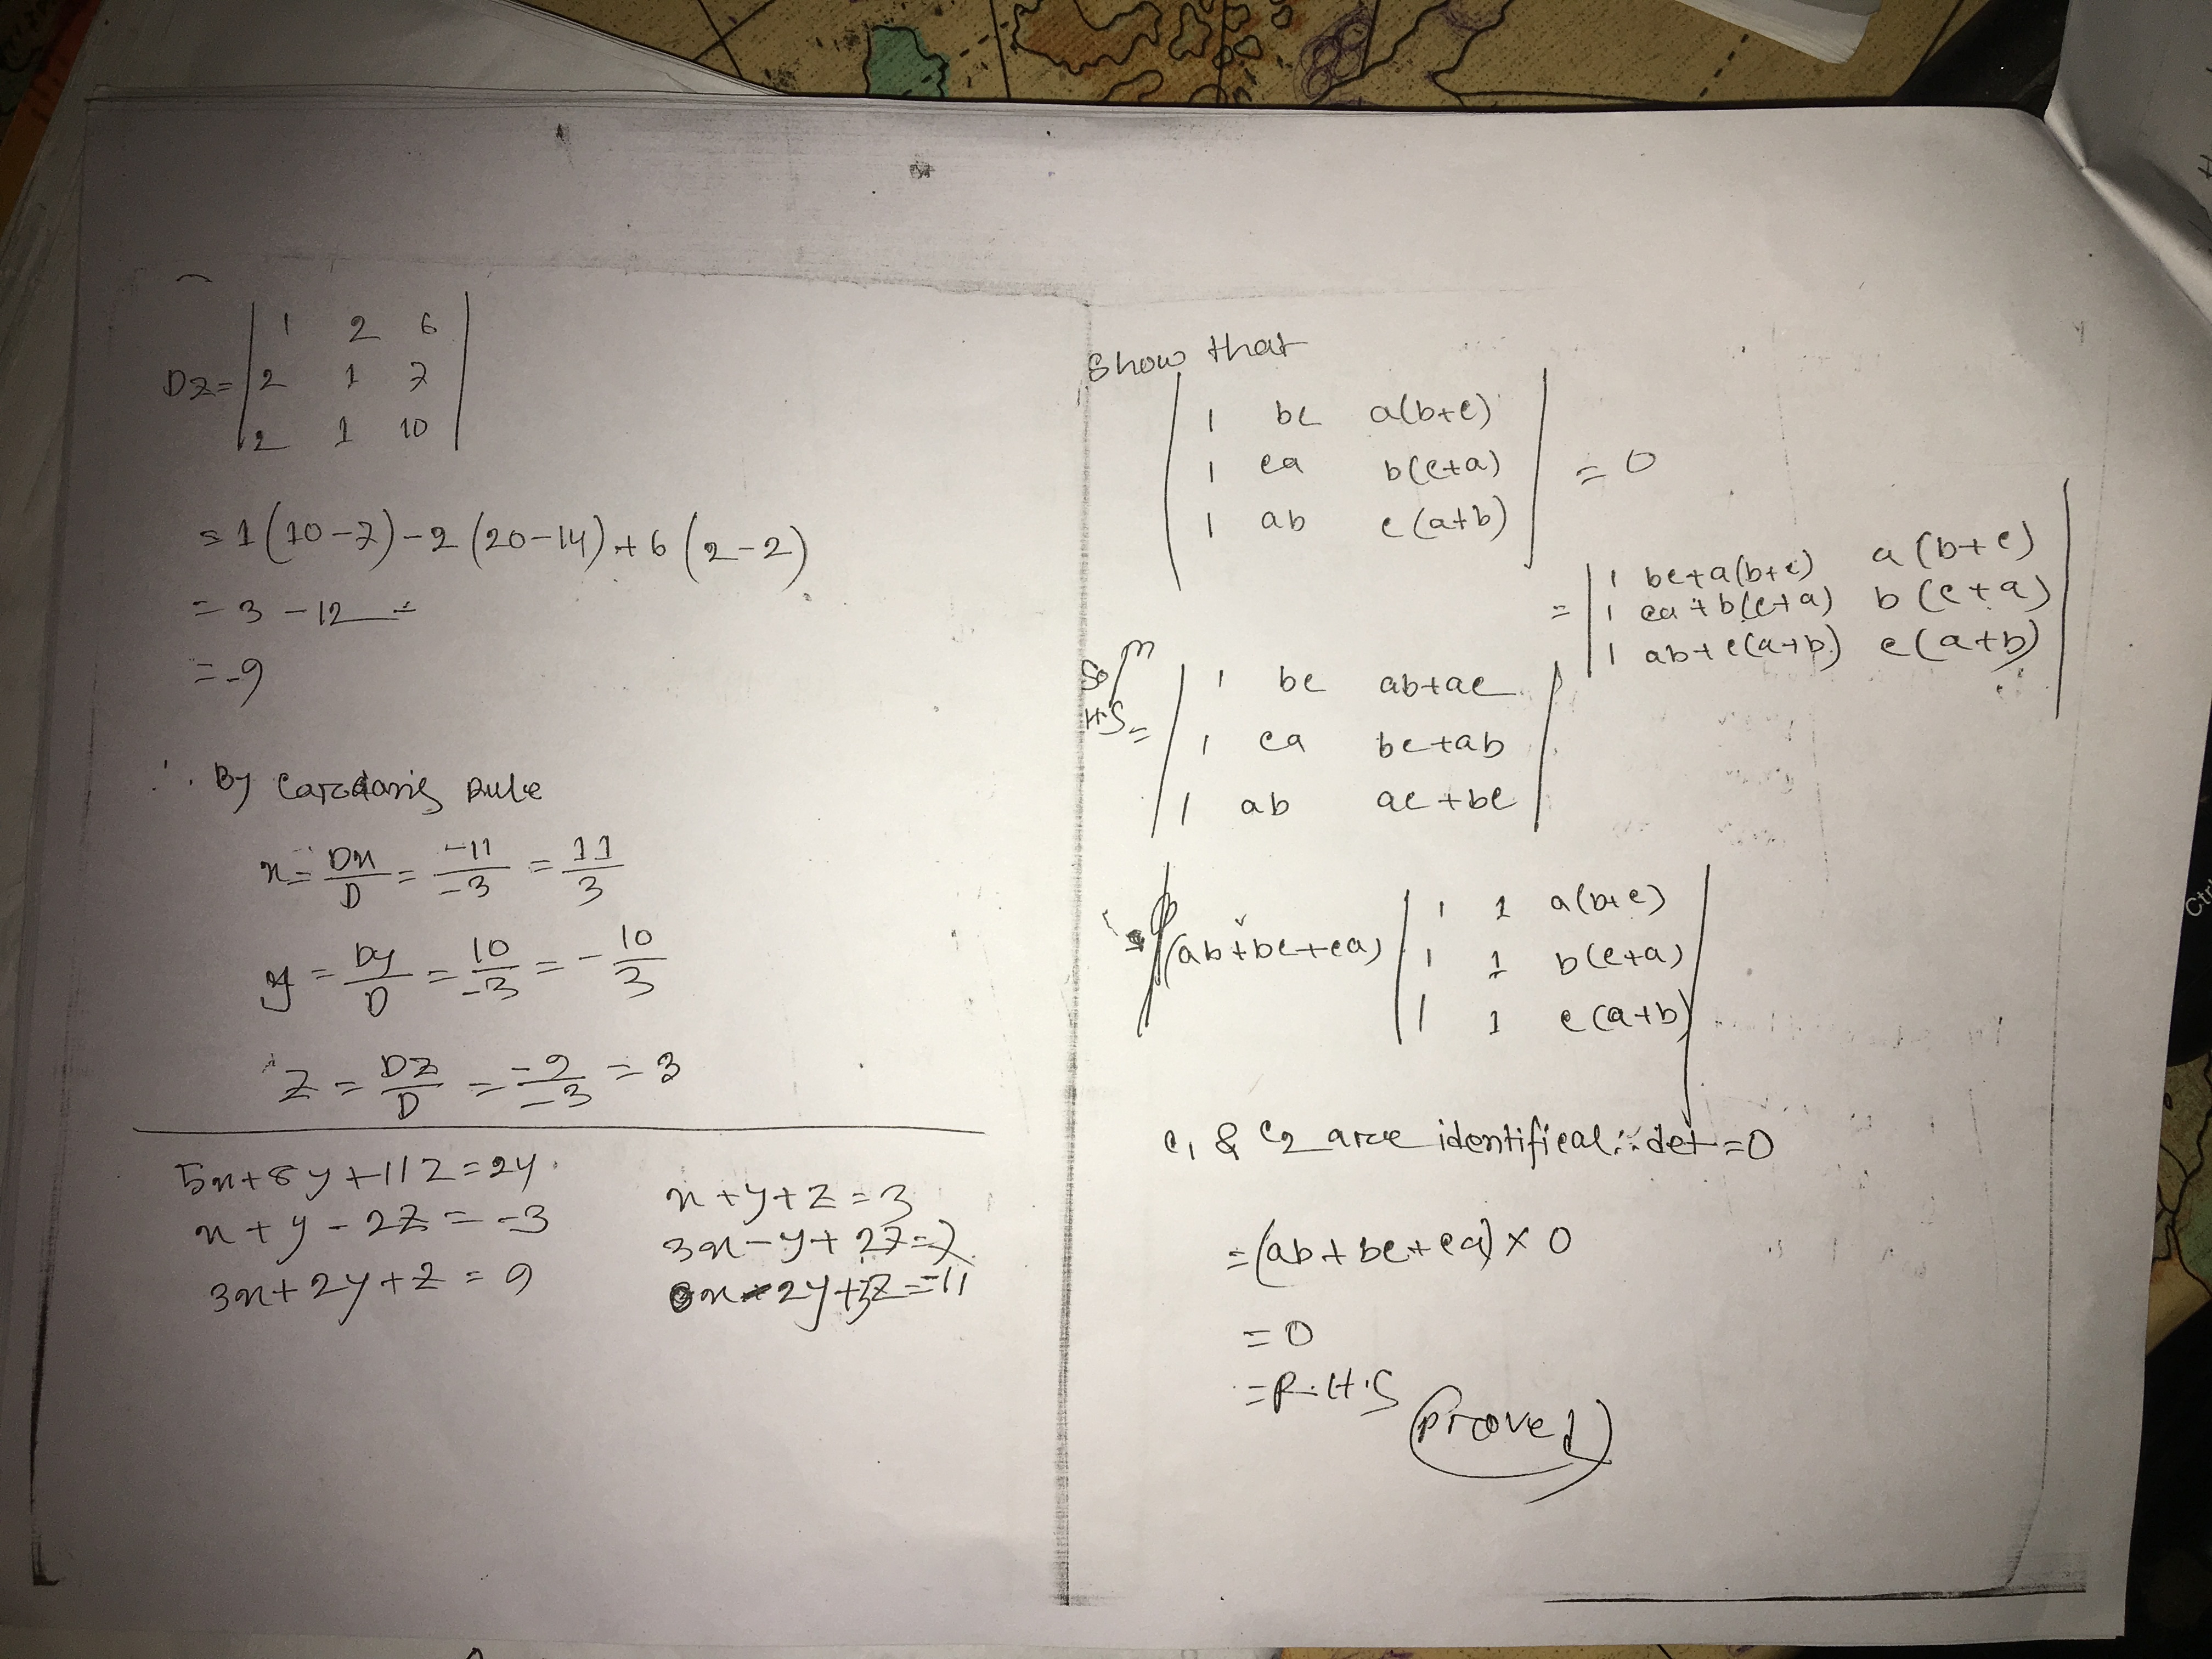 Dz= | 1 2 6 |
| 2 1 7 |
| 2 1 10 |
= 1(10-7)-2(20-14)+6(2-2)
= 3 -12
= -9
∴ By
x = Dx/D = -11/-3 = 11/3
y = Dy/D = 10/-3 = -10/3
z = Dz/D = -9/-3 = 3
5x+8y+11z=24
x+y-2z=-3
3x+2y+z=9
x+y+z=3
3x-y+2z=7
Show that
| 1 bc a(b+c) |
| 1 ca b(c+a) | = 0
| 1 ab c(a+b) |
Soln
H.S = | 1 bc ab+ac |
| 1 ca bc+ab |
| 1 ab ac+bc |
= | 1 bc+a(b+c) a(b+c) |
| 1 ca+b(c+a) b(c+a) |
| 1 ab+c(a+b) c(a+b) |
= (ab+bc+ca) | 1 1 a(b+c) |
| 1 1 b(c+a) |
| 1 1 c(a+b) |
c1 & c2 are identifical ∴ det=0
=(ab+bc+ca) × 0
= 0
= R.H.S
Proved
Ctrl